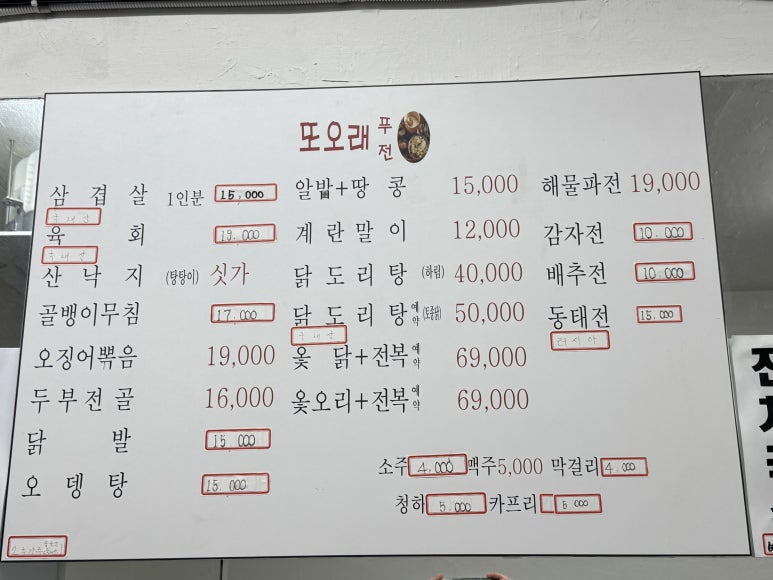 또오래 푸전
삼겹살 1인분 15,000
국내산
육회 19.000
국내산
산낙지 (탕탕이) 싯가
골뱅이무침 17.000
오징어볶음 19,000
두부전골 16,000
닭발 15.000
오뎅탕 15.000
알밥+땅콩 15,000
계란말이 12,000
닭도리탕 (하림) 40,000
닭도리탕 예약 (토종닭) 50,000
국내산
옻닭+전복 예약 69,000
옻오리+전복 예약 69,000
해물파전 19,000
감자전 10.000
배추전 10.000
동태전 15.000
러시아
소주 4.000 맥주 5,000 막걸리 4.000
청하 5.000 카프리 5.000
전